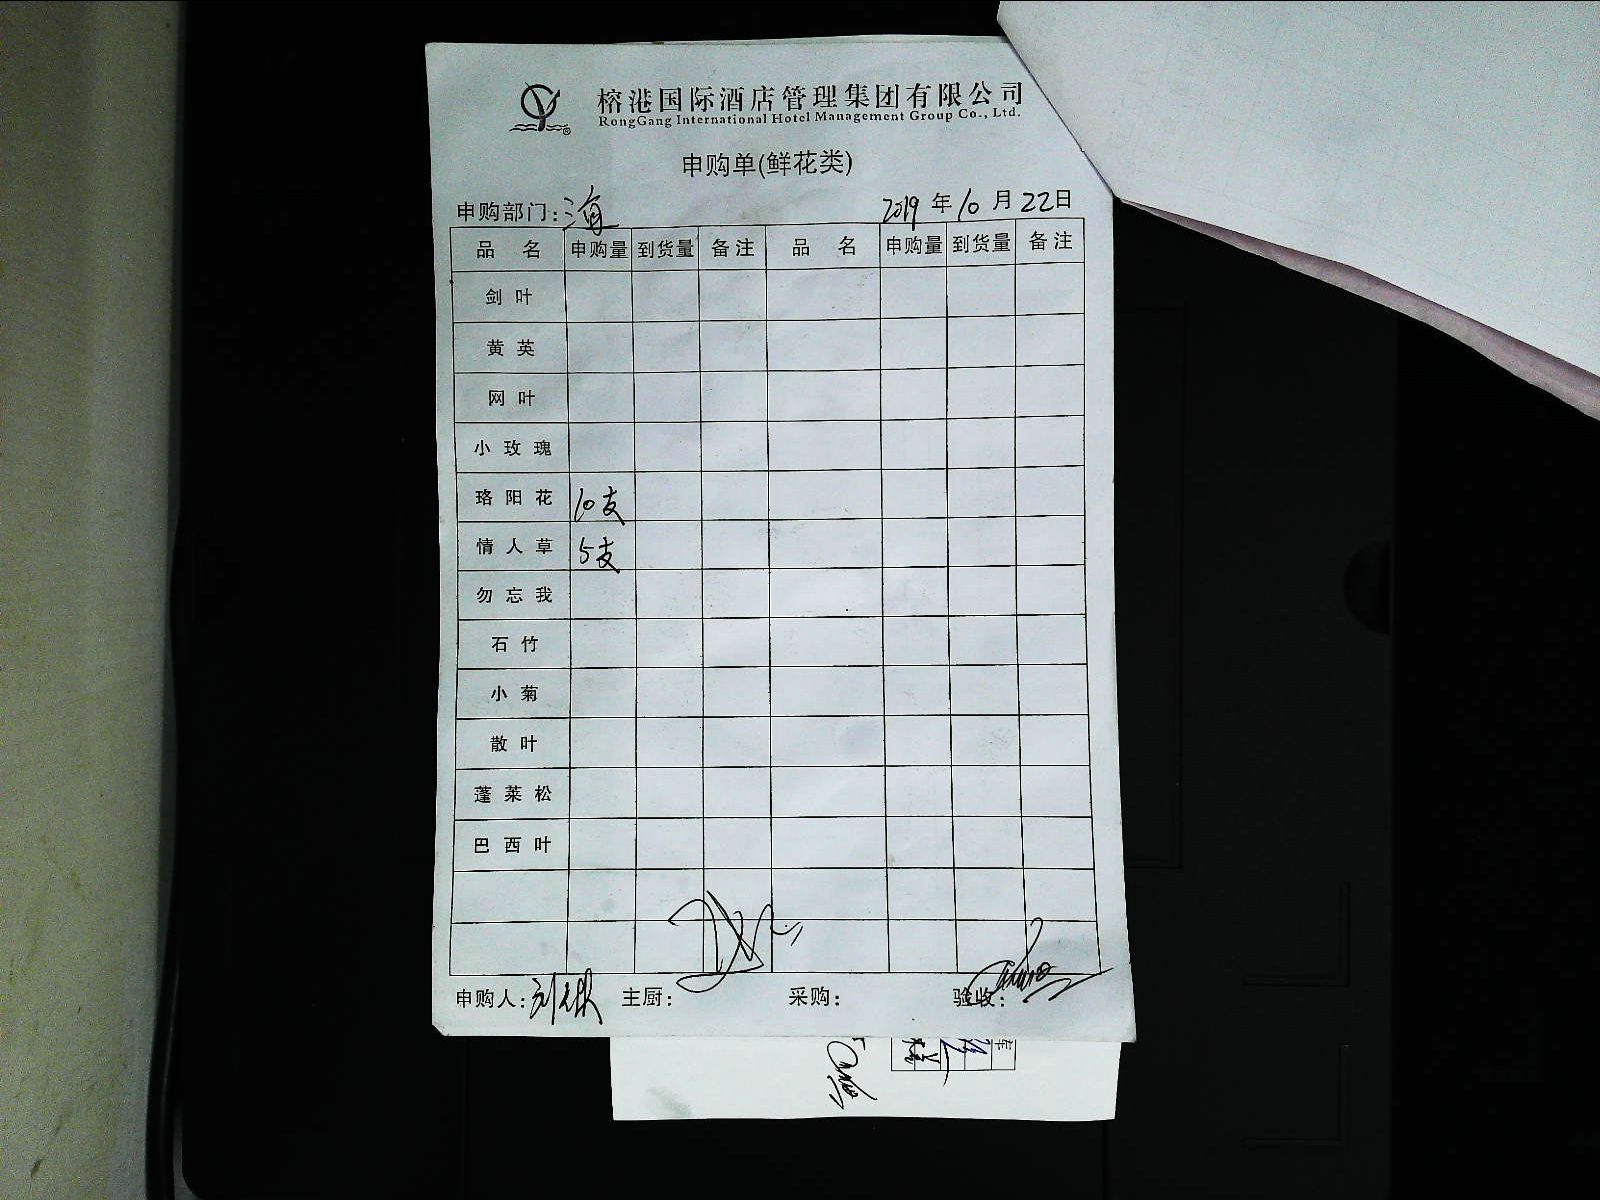 榕港国际酒店管理集团有限公司
RongGang International Hotel Management Group Co., Ltd.
申购单(鲜花类)
申购部门: 海 2019 年 10 月 22 日
品 名 申购量 到货量 备注 品 名 申购量 到货量 备注
剑叶
黄英
网叶
小玫瑰
珞阳花 10支
情人草 5支
勿忘我
石竹
小菊
散叶
蓬莱松
巴西叶
申购人: 主厨: 采购: 验收: